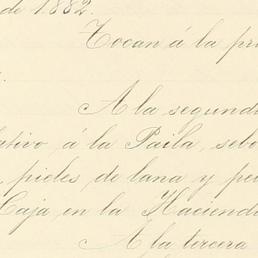 de 1882.
Tocan á la pri
A la segund
ativo, á la Paila, sebo
, pieles, de lana y pe
Caja, en la Haciend
A la tercera